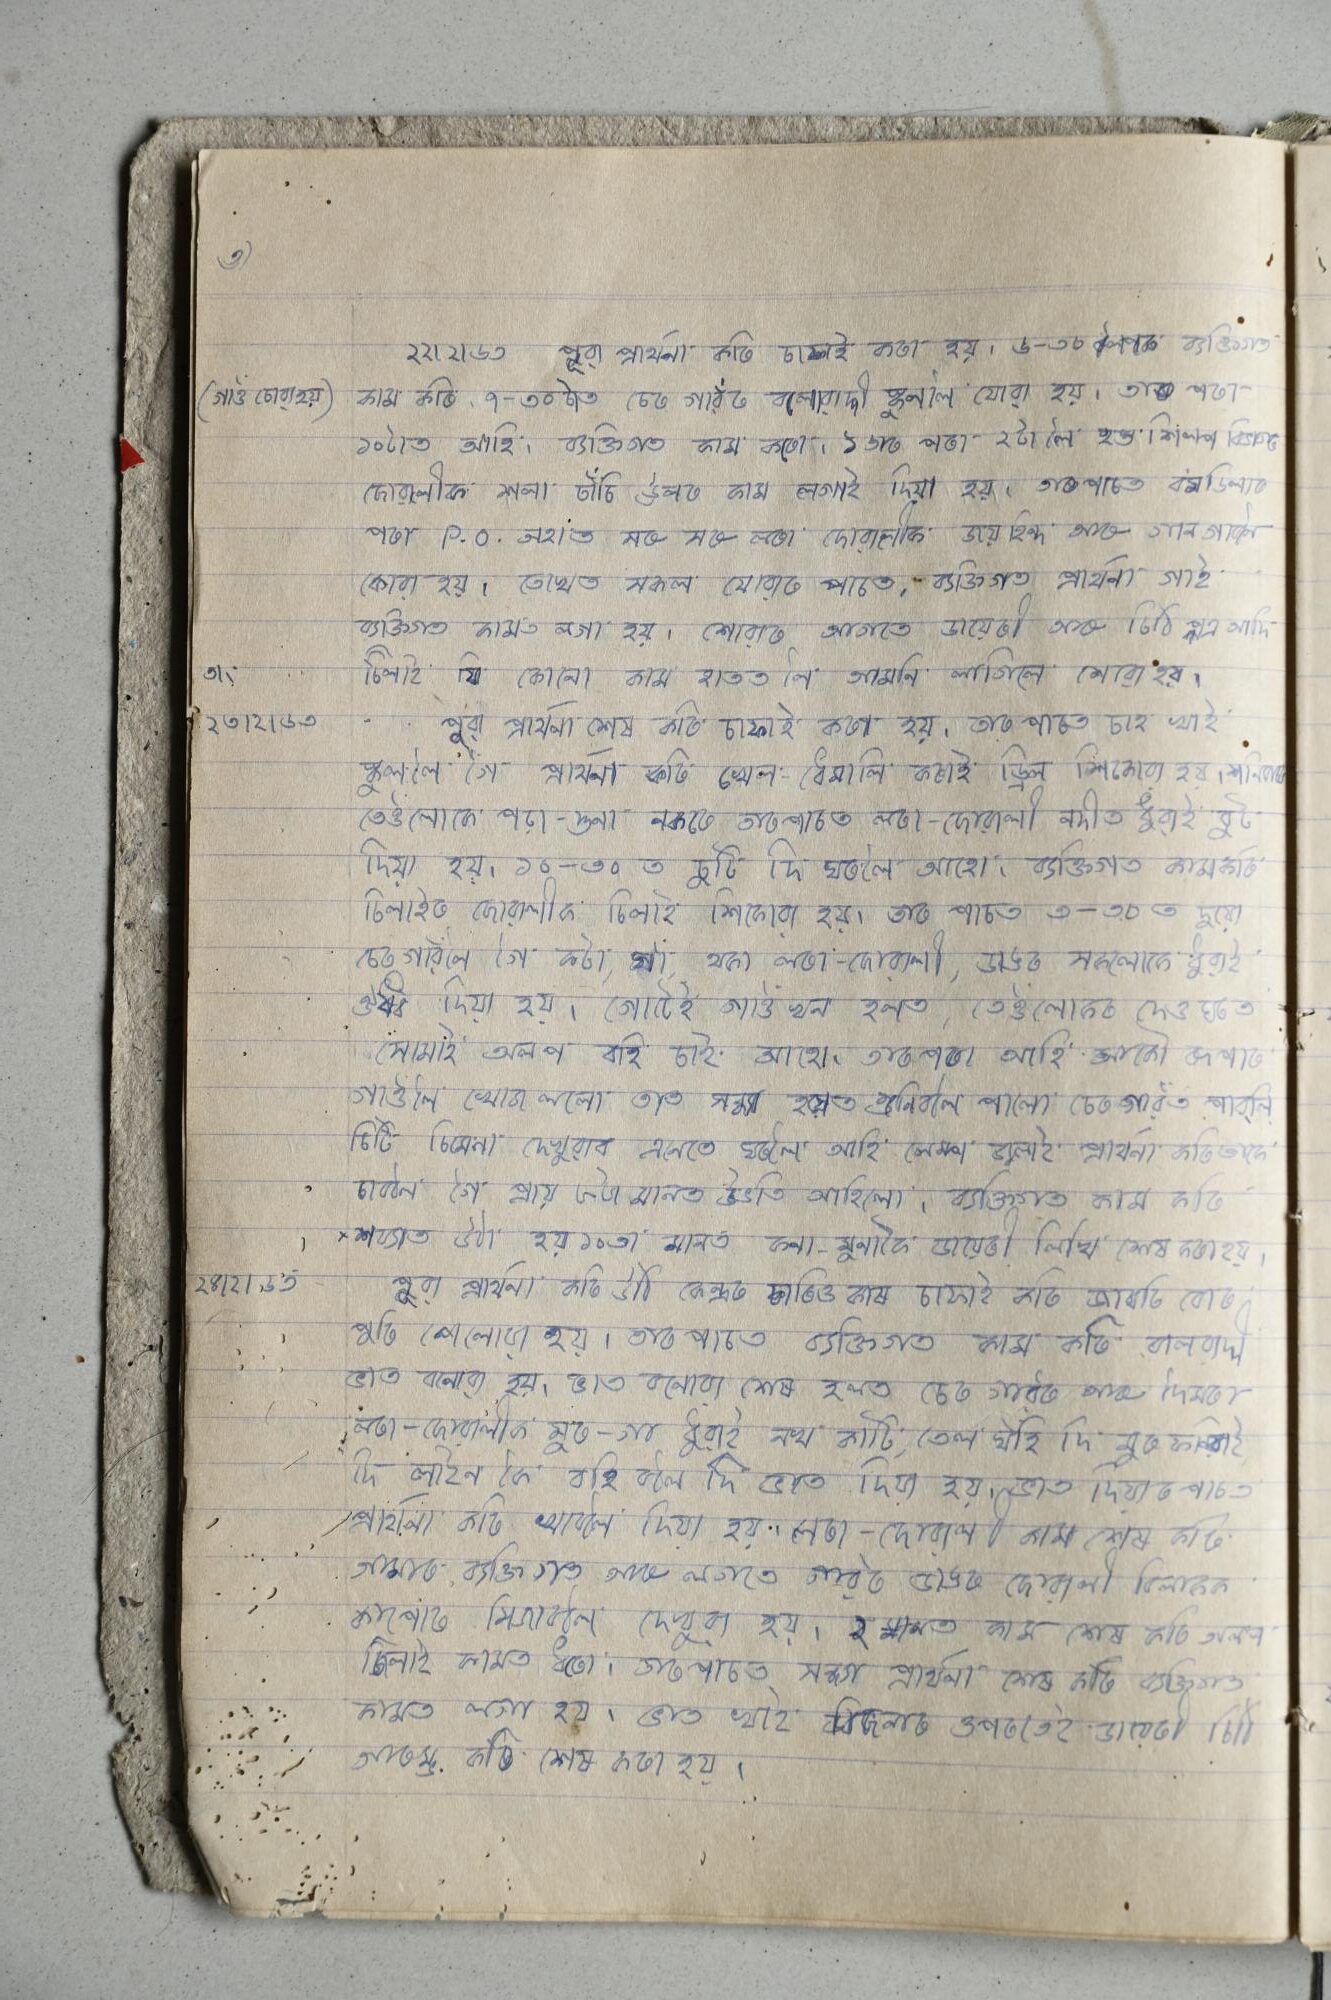 ৩)
২২।২।৬৩ পুৱা প্ৰাৰ্থনা কৰি চাফাই কৰা হয়। ৬-৩০ ব্যক্তিগত
(গাওঁ চোৱা হয়) কাম কৰি ৭-৩০টাত চেৰ গাৱঁৰ বালোবাদী স্কুললৈ যোৱা হয়। তাৰ পৰা
১০টাত আহি। ব্যক্তিগত কাম কৰো। ১টাৰ পৰা ২টা লৈ হস্ত শিল্প বিভাগত
ছোৱালীক শলা চাঁচি উলৰ কাম লগাই দিয়া হয়। তাৰ পাচত বমডিলাৰ
পৰা P.O. অহাত সৰু সৰু লৰা ছোৱালীক জয় হিন্দ আৰু গান গাবলৈ
কোৱা হয়। তেখেত সকল যোৱাৰ পাচত, ব্যক্তিগত প্ৰাৰ্থনা গাই
ব্যক্তিগত কামত লগা হয়। শোৱাৰ আগতে ডায়েৰী আৰু চিঠি পত্ৰ আদি
তা: চিলাই যি কোনো কাম হাতত লৈ আমনি লাগিলে শোৱা হয়।
২৩।২।৬৩ পুৱা প্ৰাৰ্থনা শেষ কৰি চাফাই কৰা হয়, তাৰ পাচত চাহ খাই
স্কুললৈ গৈ প্ৰাৰ্থনা কৰি খেল-ধেমালি কৰাই ড্ৰিল শিকোৱা হয়। শনিবাৰে
তেওঁলোকে পঢ়া-শুনা নকৰে তাৰপাচত লৰা-ছোৱালী নদীত ধুৱাই
দিয়া হয়। ১০-৩০ ত ছুটি দি ঘৰলৈ আহো। ব্যক্তিগত কাম কৰি
চিলাইৰ ছোৱালীক চিলাই শিকোৱা হয়। তাৰ পাচত ৩-৩০ ত দুয়ো
চেৰ গাৱঁলৈ গৈ কটা, ঘা, থকা লৰা-ছোৱালী, ডাঙৰ সকলোকে ধুৱাই
ঔষধ দিয়া হয়। গোটেই গাওঁ খন হলত, তেওঁলোকৰ দেও ঘৰত
সোমাই অলপ বহি চাই আহো। তাৰ পৰা আহি আকৌ
গাওঁলৈ খোজ ললো তাত সন্ধ্যা হয়েত শুনিবলৈ পালো চেৰ গাৱঁত
চিনেমা দেখুৱাব এনেতে ঘৰলৈ আহি লেম্প জ্বলাই প্ৰাৰ্থনা কৰি তাকে
চাবলৈ গৈ প্ৰায় মানত উভতি আহিলো। ব্যক্তিগত কাম কৰি
শয্যাত উঠা হয় ১০টা মানত ডায়েৰী লিখি শেষ কৰা হয়।
২৪।২।৬৩ পুৱা প্ৰাৰ্থনা কৰি উঠি কেন্দ্ৰৰ চাৰিও কাষ চাফাই কৰি জাবৰি বোৰ
পুৰি পেলোৱা হয়। তাৰ পাচত ব্যক্তিগত কাম কৰি বালবাদী
ভাত বনোৱা হয়। ভাত বনোৱা শেষ হলত চেৰ গাৱঁৰ আৰু
লৰা-ছোৱালীক মুৰ-গা ধুৱাই নখ কাটি, তেল ঘঁহি দি মুৰ ফনিয়াই
দি লাইন কৈ বহিবলৈ দি ভাত দিয়া হয়। ভাত দিয়াৰ পাচত
প্ৰাৰ্থনা কৰি খাবলৈ দিয়া হয়। লৰা-ছোৱালী কাম শেষ কৰি
আমাৰ ব্যক্তিগত আৰু লগতে গাৱঁৰ ডাঙৰ ছোৱালী বিলাকক
কাপোৰ সিজাবলৈ দেখুৱা হয়। ২ মানত কাম শেষ কৰি অলপ
চিলাই কামত ধৰো। তাৰপাচত সন্ধ্যা প্ৰাৰ্থনা শেষ কৰি ব্যক্তিগত
কামত লগা হয়। ভাত খাই বিছনাৰ ওপৰতেই ডায়েৰী চিঠি
আৰম্ভ কৰি শেষ কৰা হয়।